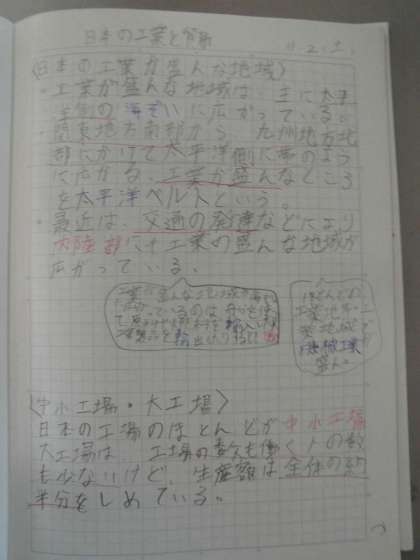 日本の工業と貿易
11.2.土.
〈日本の工業が盛んな地域〉
・工業が盛んな地域は、主に太平
洋側の海ぞいに広がっている。
・関東地方南部から、九州地方北
部にかけて太平洋側に帯のよう
に広がる、工業が盛んなところ
を太平洋ベルトという。
・最近は、交通の発達などにより
内陸部にも工業の盛んな地域が
広がっている。
工業が盛んな地域が海ぞい
に広がっているのは
ほとんどの
工業地帯・工
業地域で
機械工業が
盛ん。
〈中小工場・大工場〉
日本の工場のほとんどが中小工場
大工場は、工場の数も働く人の数
も少ないけど、生産額は全体の約
半分をしめている。